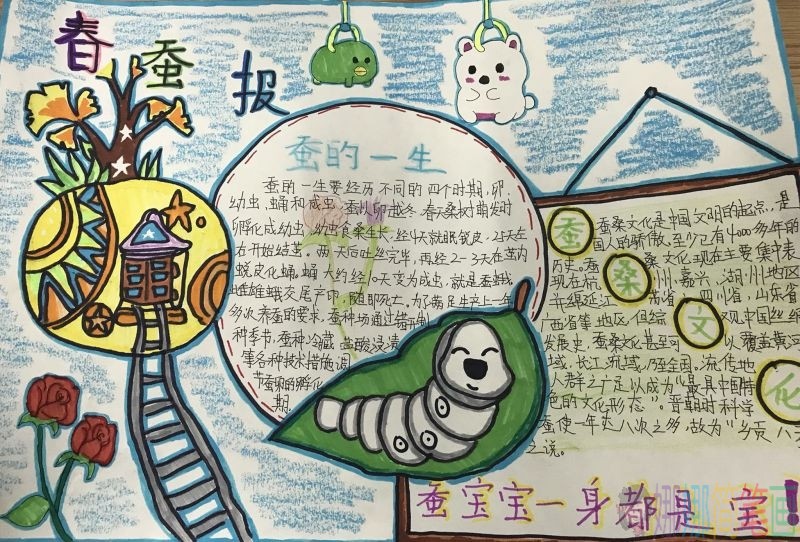 春蚕报
蚕的一生
蚕的一生要经历不同的四个时期,卵、
幼虫、蛹和成虫。蚕以卵越冬,春天桑树萌发时
孵化成幼虫,幼虫食桑生长,经4次就眠蜕皮,25天左
右开始结茧。两天吐丝完毕,再经2-3天在茧内
蜕皮化蛹。蛹大约经10天变为成虫,就是蚕蛾。
雌雄蛾交尾产卵,随即死亡。为了满足生产上一年
多次养蚕的要求,蚕种场通过错
种季节,蚕种冷藏、盐酸浸
等各种技术措施,调
节蚕卵的孵化
期。
蚕桑文化
蚕桑文化是中国文明的起点,是
国人的骄傲,至少已有4000多年的
历史。蚕桑文化,现在主要集中表
现在杭州、嘉兴、湖州地区
并绵延江 四川省,山东省
广西省等地区。但综 观中国丝绸
发展史,蚕桑文化甚至可以覆盖黄河
域、长江流域,乃至全国。流传地
人群之广足以成为“最具中国特
色的文化形态”。晋期时科学
蚕使一年达八次之多,故为“乡贡八
之说。
蚕宝宝一身都是宝!